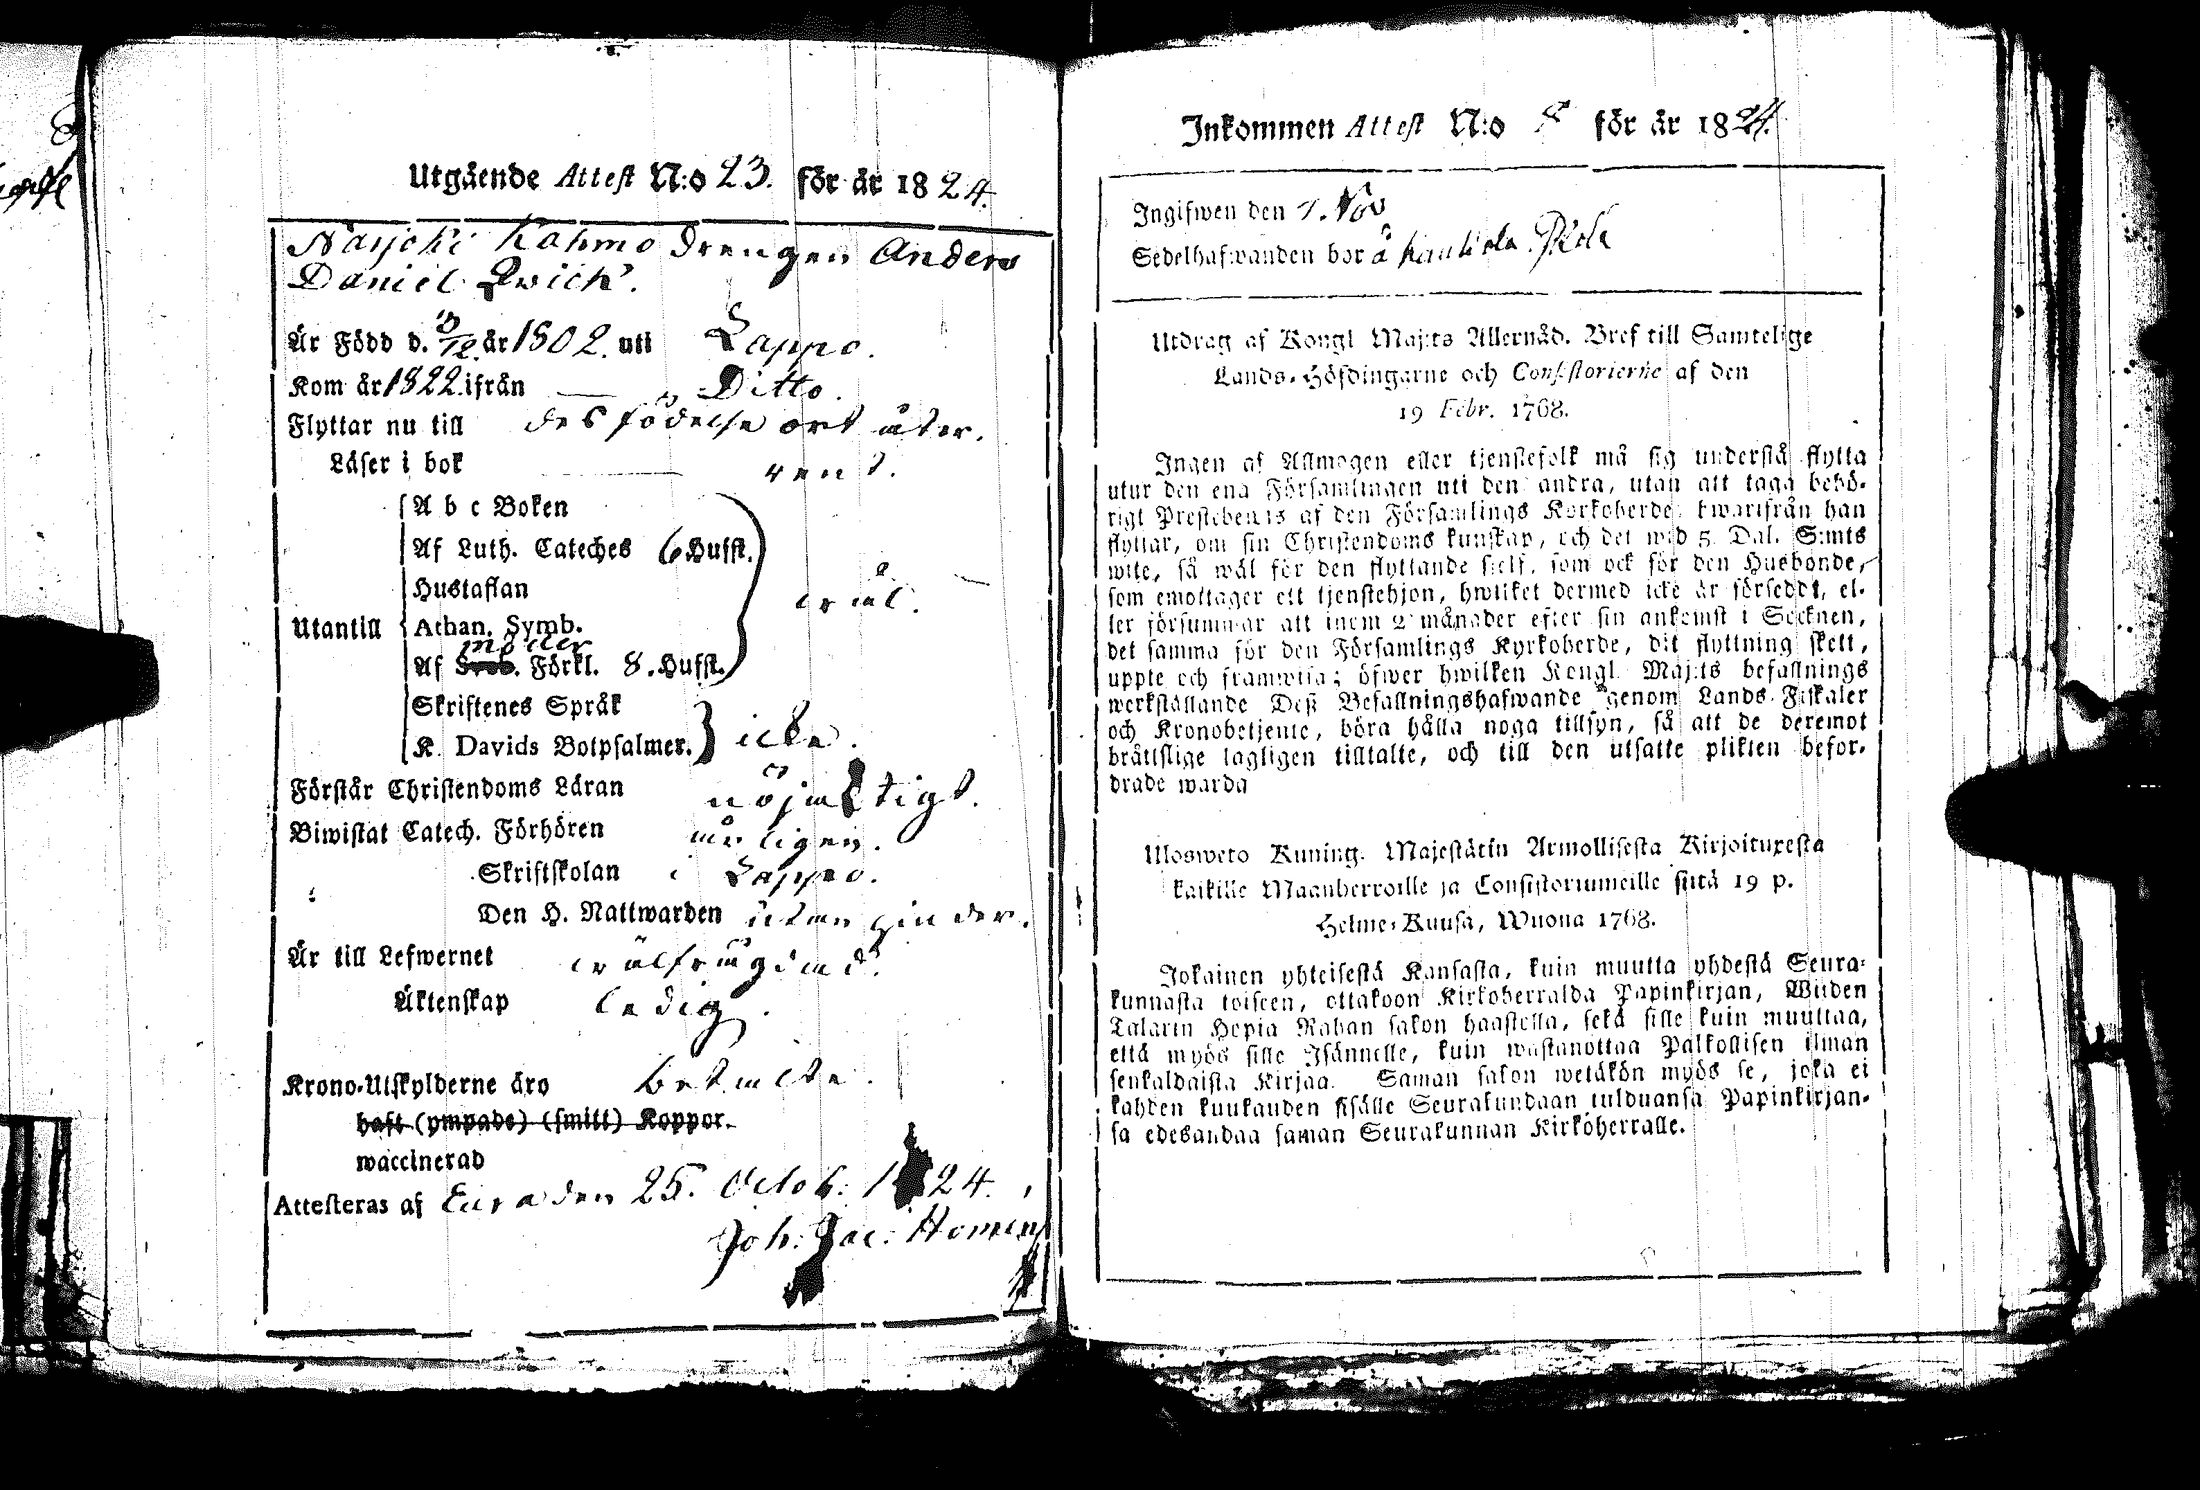 Utgående Attest N:o 23. för år 1824.
Kahmo Drengen Anders
Daniel Qwick.
Är Född d. /12. år 1802. uti Lappo.
Kom år 1822. ifrån Ditto.
Flyttar nu till des födelse ort åter.
Läser i bok rent.
A b c Boken
Af Luth. Cateches 6 Hufst.
Hustaflan
wäl.
Utantill
Athan. Symb.
Af Förkl. 8. Hufst.
Skriftenes Språk
K. Davids Botpsalmer. icke.
Förstår Christendoms Läran nöjaktigt.
Biwistat Catech. Förhören årligen.
Skriftskolan i Lappo.
Den H. Nattwarden utan hinder.
Är till Lefwernet wälfrägdad.
Äktenskap ledig.
Krono-Utskylderne äro betalte.
haft (ympade) (smitt) Koppor.
waccinerad
Attesteras af Eura den 25. Octob: 1824.
Joh: Jac: Homen
Inkommen Attest N:o 8 för år 1824.
Ingifwen den 7. Nov
Sedelhafwanden bor å
Utdrag af Kongl Maj:ts Allernåd. Bref till Samtelige
Lands-Höfdingarne och Consistorierne af den
19 Febr. 1768.
Ingen af Allmogen eller tjenstefolk må sig understå flytta
utur den ena Församlingen uti den andra, utan att taga behö-
rigt Prestebewis af den Församlings Kyrkoherde, hwarifrån han
flyttar, om sin Christendoms kunskap, och det wid 5. Dal. S:mts
wite, så wäl för den flyttande sjelf, som ock för den Husbonde,
som emottager ett tjenstehjon, hwilket dermed icke är försedt, el-
ler försummar att inom 2 månader efter sin ankomst i Socknen,
det samma för den Församlings Kyrkoherde, dit flyttning skett,
uppte och framwisa; öfwer hwilken Kongl Maj:ts befallnings
werkställande Deß Befallningshafwande genom Lands-Fiskaler
och Kronobetjente, böra hålla noga tillsyn, så att de deremot
bråttslige lagligen tilltalte, och till den utsatte plikten befor-
drade warda
Ulosweto Kuning. Majestätin Armollisesta Kirjoituxesta
kaikille Maanherroille ja Consistoriumeille siitä 19 p.
Helme-Kuusa, Wuona 1768.
Jokainen yhteisestä Kansasta, kuin muutta yhdestä Seura-
kunnasta toiseen, ottakoon Kirkoherralda Papinkirjan, Wiiden
Talarin Hopia Rahan sakon haastolla, sekä sille kuin muuttaa,
että myös sille Isännelle, kuin wastanottaa Palkollisen ilman
senkaldaista Kirjaa. Saman sakon wetäkön myös se, joka ei
kahden kuukauden sisälle Seurakundaan tulduansa Papinkirjan-
sa edesandaa saman Seurakunnan Kirkoherralle.